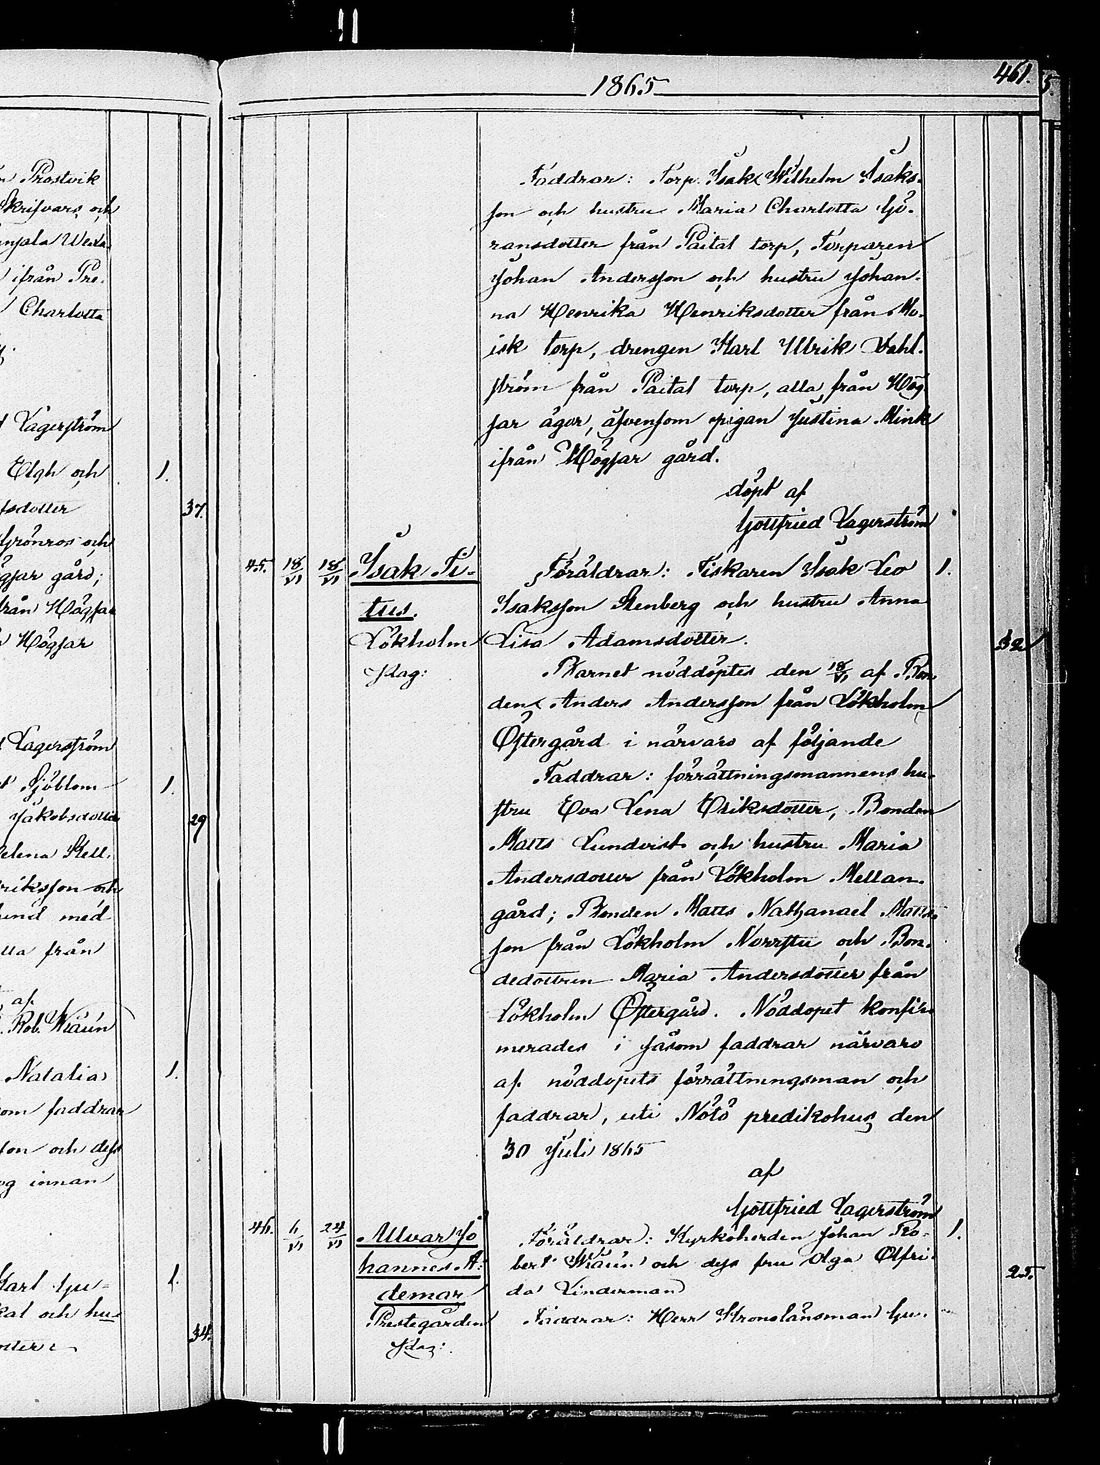 1865
461.
n Prostvik
Skrifvars, och
njala Westa
ifrån Pre-
Charlotta
d Lagerström
Elgh och 1.
fsdotter 37.
Grönros och
gsar gård;
från Högsar
Högsar
d Lagerström
Sjöblom 1.
Jakobsdotter 29
elena Stell-
riksson och
lund med
lla från
af
Rob. Wiaün
Natalia 1.
om faddrar
son och dess
og innan
Karl Gu- 1.
kal och hus-
otter 34.
Faddrar: Torp. Isak Wilhelm Isaks-
son och hustru Maria Charlotta Gö-
ransdotter från Paital torp, Torparen
Johan Andersson och hustru Johan-
na Henrika Henriksdotter från Mo-
isk torp, drengen Karl Ullrik Dahl-
ström från Paital torp, alla från Hög-
sar ägor, äfvensom pigan Justina Mink
ifrån Högsar gård.
döpt af
Gottfried Lagerström
45. 18/VI 18/VI Isak Ti- Föräldrar: Fiskaren Isak Leo 1.
tus. Isaksson Stenberg och hustru Anna
Lökholm Lisa Adamsdotter. 32
Kag: Barnet nöddöptes den 18/VI af Bon-
den Anders Andersson från Lökholm
Östergård i närvaro af följande
Faddrar: förrättningsmannens hu-
stru Eva Lena Eriksdotter, Bonden
Matts Lundqvist och hustru Maria
Andersdotter från Lökholm Mellan-
gård; Bonden Matts Nathanael Matts-
son från Lökholm Norrstu och Bon-
dedottren Maria Andersdotter från
Lökholm Östergård. Nöddopet konfir-
merades i såsom faddrar närvaro
af nöddopets förrättningsman och
faddrar, uti Nötö predikohus den
30 Juli 1865
af
Gottfried Lagerström
46. 6/VI 24/VI Allvar Jo- Föräldrar: Kyrkoherden Johan Ro- 1.
hannes A- bert Wiaün och dess fru Olga Elfri-
demar da Linderman 25.
Prestegården Faddrar: Herr Kronolänsman Gu-
Kag: